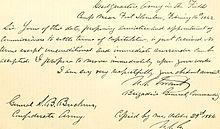 Head Quarters, Army in the Field
Camp near Fort Donelson, Feby 16th 1862
Sir: Yours of this date proposing armistice and appointment of
Commissioners to settle terms of Capitulation is just received. No
terms except unconditional and immediate surrender can be
accepted. I propose to move immediately upon your works.
I am Sir, very respectfully,
your obedient servant
U. S. Grant
Brigadier General
Genl S. B. Buckner
Confederate Army